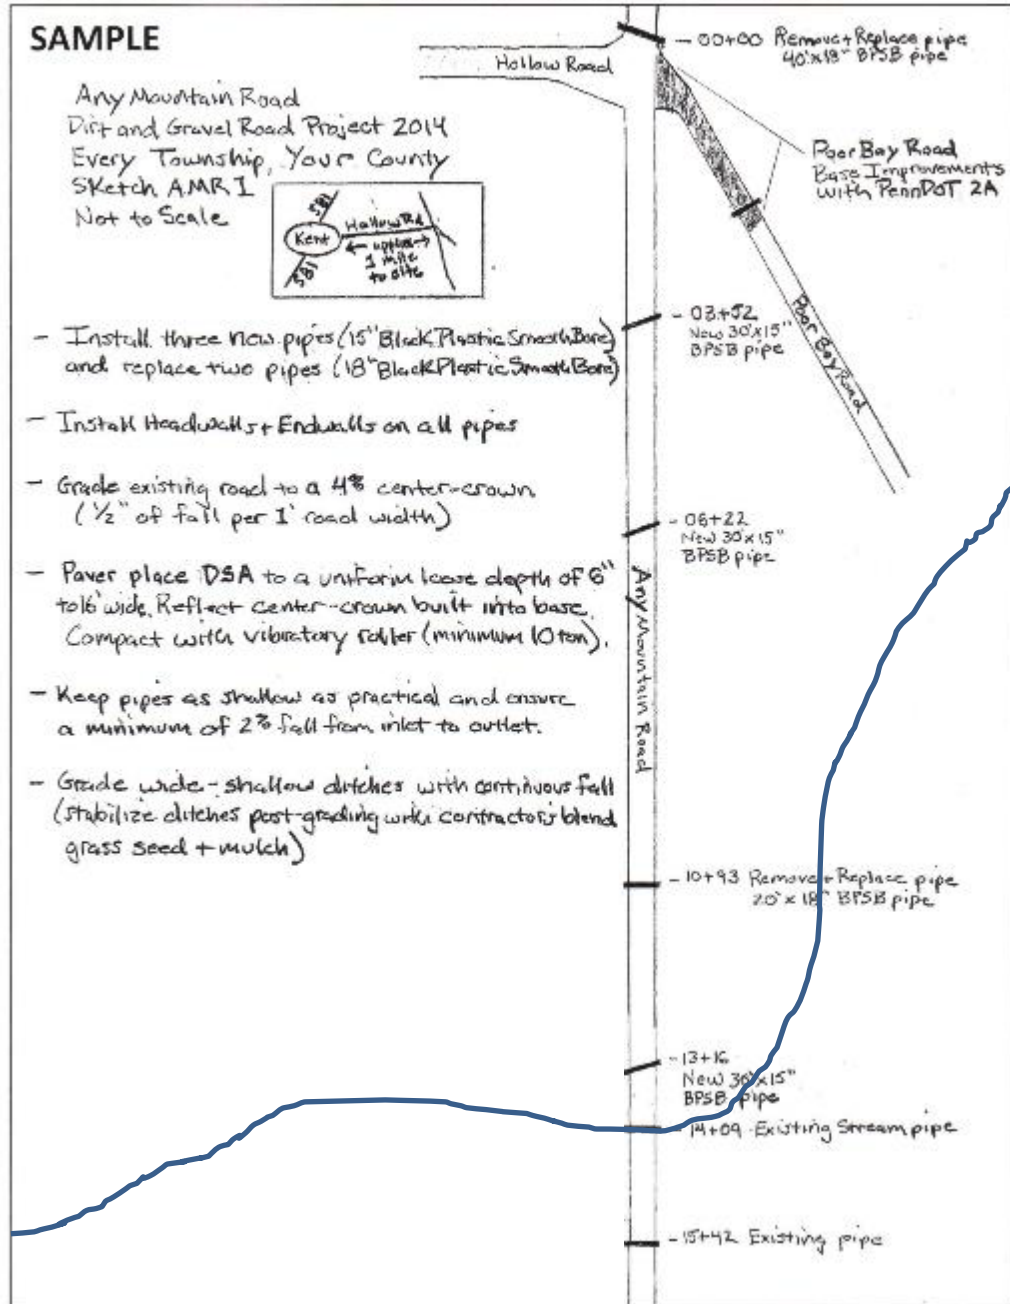 SAMPLE
Any Mountain Road
Dirt and Gravel Road Project 2014
Every Township, Your County
Sketch AMR 1
Not to Scale
581
Kent
581
Hollow Rd
approx
1 mile
to site
- Install three new pipes (15" Black Plastic Smooth Bore)
and replace two pipes (18" Black Plastic Smooth Bore)
- Install Headwalls + Endwalls on all pipes
- Grade existing road to a 4% center-crown
(1/2" of fall per 1' road width)
- Paver place DSA to a uniform loose depth of 6"
to 16' wide. Reflect center-crown built into base.
Compact with vibratory roller (minimum 10 ton).
- Keep pipes as shallow as practical and ensure
a minimum of 2% fall from inlet to outlet.
- Grade wide-shallow ditches with continuous fall
(stabilize ditches post-grading with contractor's blend
grass seed + mulch)
Hollow Road
- 00+00 Remove + Replace pipe
40'x18" BPSB pipe
Poor Boy Road
Base Improvements
with PennDOT 2A
- 03+52
New 30'x15"
BPSB pipe
Poor Boy Road
- 06+22
New 30'x15"
BPSB pipe
Any Mountain Road
- 10+93 Remove + Replace pipe
20'x18" BPSB pipe
- 13+16
New 30'x15"
BPSB pipe
- 14+09 - Existing Stream pipe
- 15+42 Existing pipe